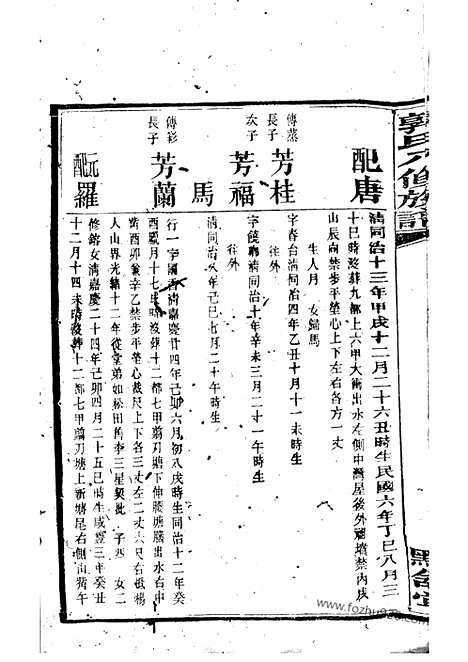 郭氏八修族譜
配唐
清同治十三年甲戌十二月二十六丑時生民國六年丁巳八月三
十巳時沒葬九都上六甲大衝出水左側中灣屋後外禰墳禁內戌
山辰向禁步平塋心上下左右各方一丈
生人月 女歸馬
傳蒸
長子
芳桂
字春台清同治四年乙丑十月十一未時生
往外
次子
芳福
字饒 清同治十年辛未三月二十一午時生
往外
馬
清同治八年己巳七月二十午時生
傳彩
長子
芳蘭
行一字 清嘉慶廿四年己卯六月初八戌時生同治十二年癸
酉 月十七 時沒葬十二都七甲翦刀塘下伸腰塘勝出水右中
酉卯 辛乙禁步平塋心裁尺上下各三丈左二丈六尺右抵楊
人山界光緒十二年從堂弟如松田 李三星契批 子 女二
元配
羅
修 女清嘉慶二十四年己卯四月二十五巳時生咸豐三年癸丑
十二月十四未時沒葬十二都七甲翦刀塘上新塘尾右側山
www.fozhu920.com